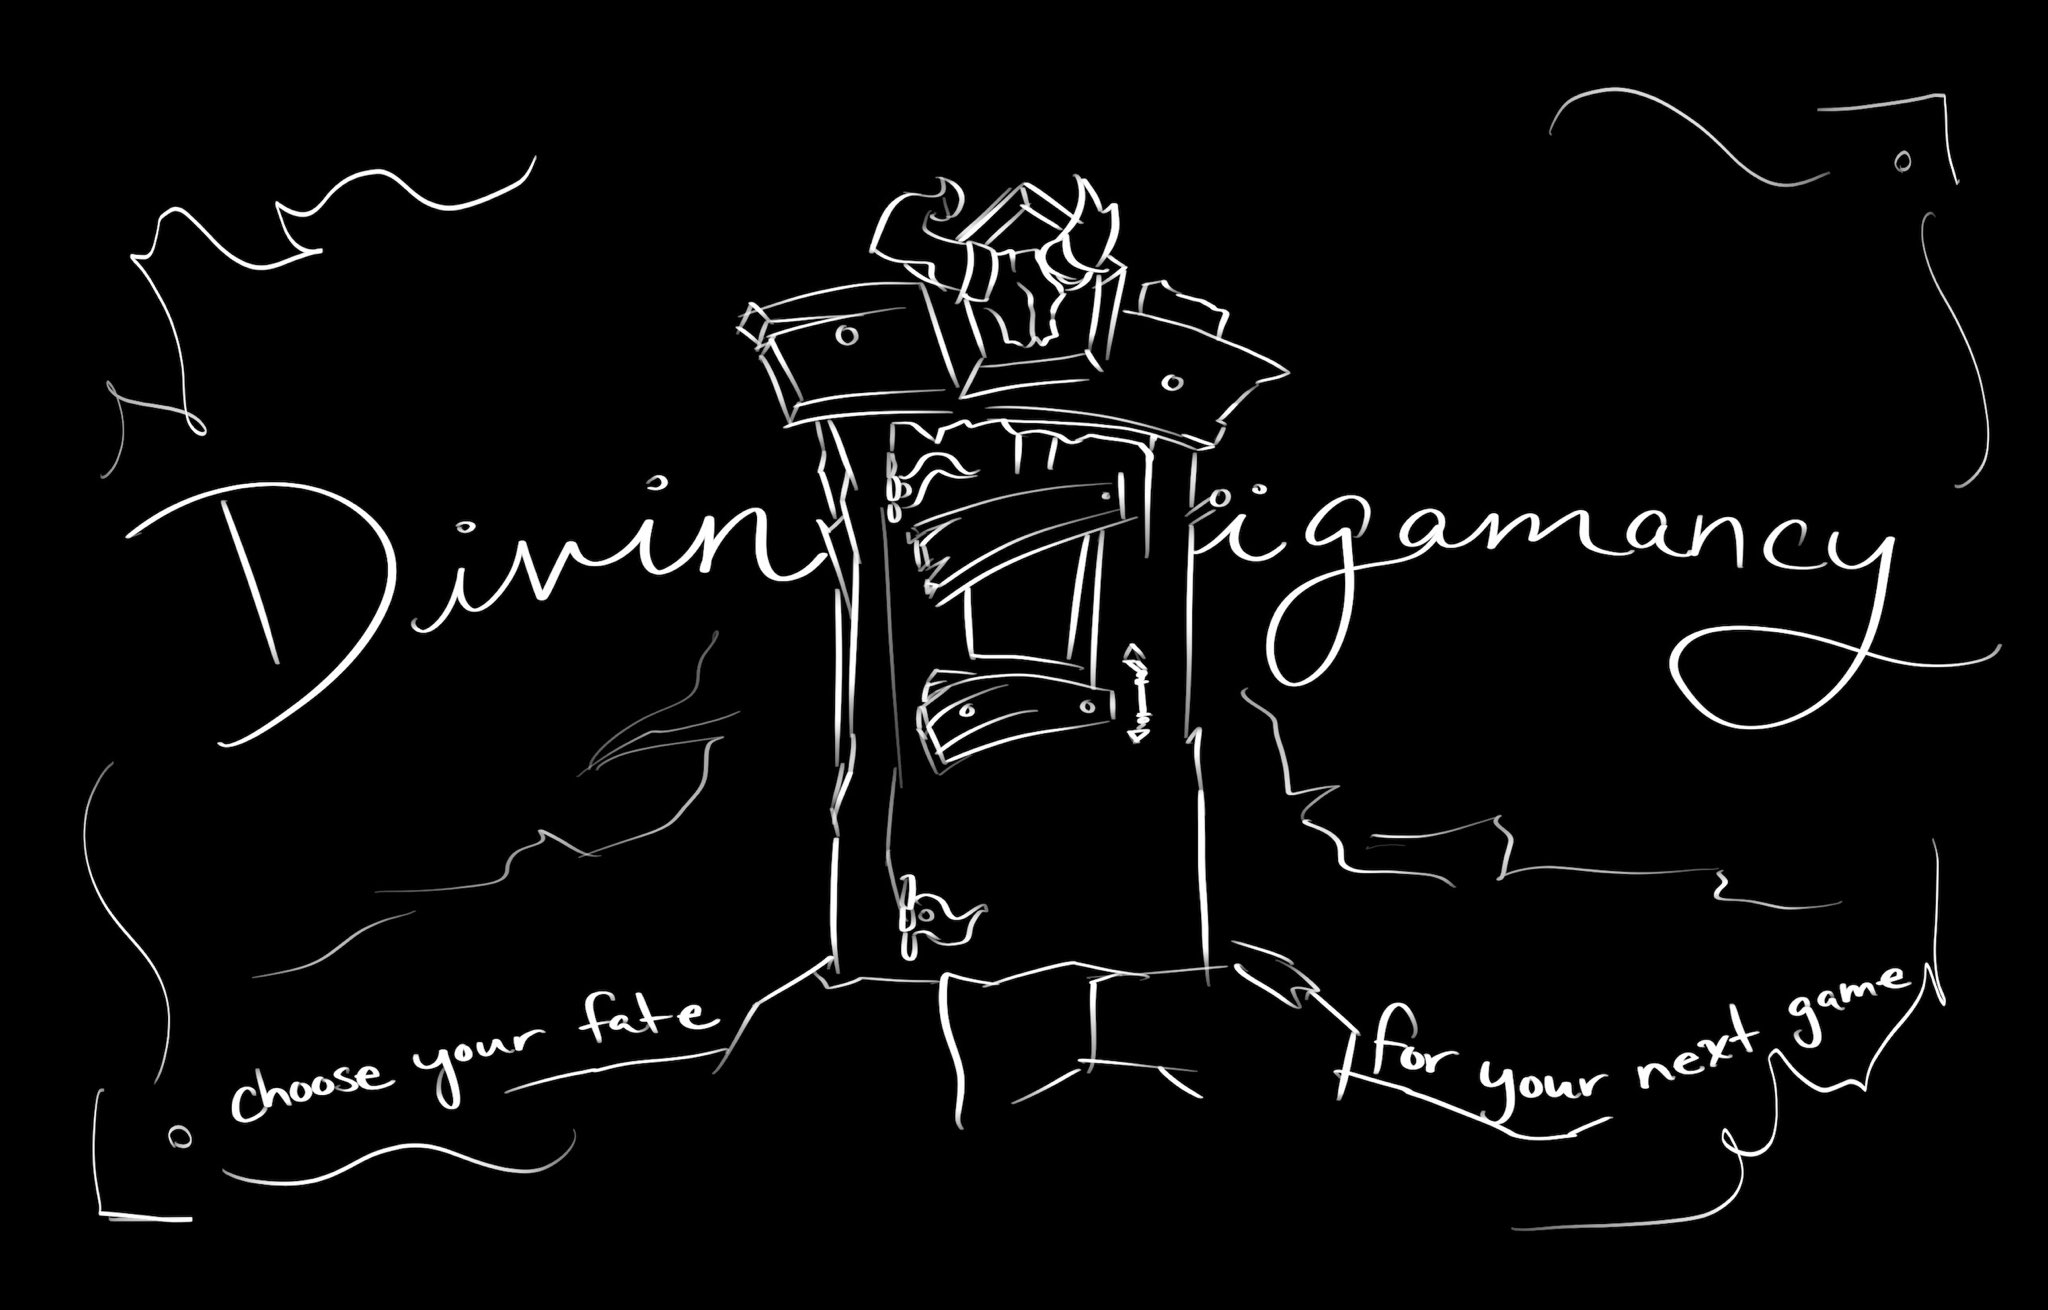 Divin igamancy
choose your fate
for your next game